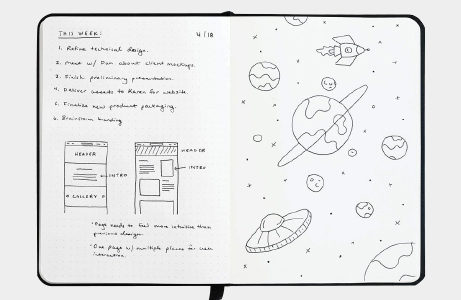 THIS WEEK: 4/18
1. Refine technical design.
2. Meet w/ Dan about client mockups.
3. Finish preliminary presentation.
4. Deliver assets to Karen for website.
5. Finalize new product packaging.
6. Brainstorm branding
HEADER HEADER
INTRO INTRO
GALLERY
· Page needs to feel more intuitive than
previous design.
· One page w/ multiple places for user
interaction.